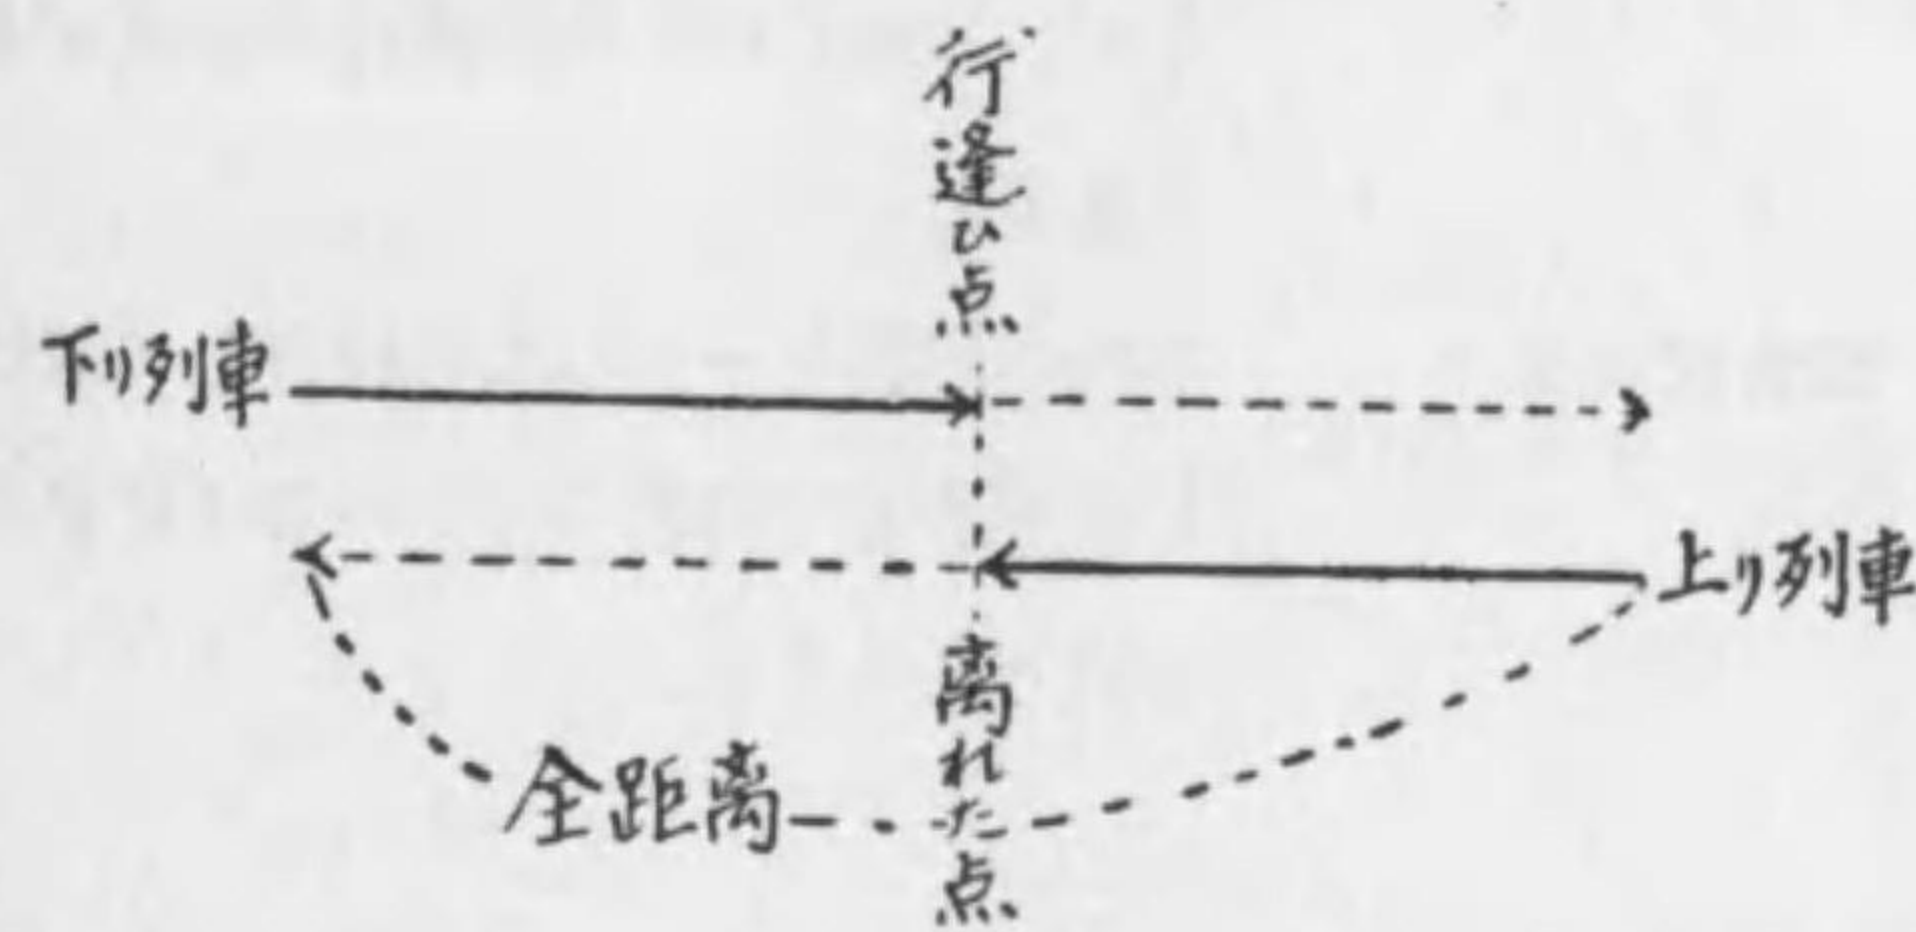 行逢ひ点
下り列車
上り列車
離れた点
全距離